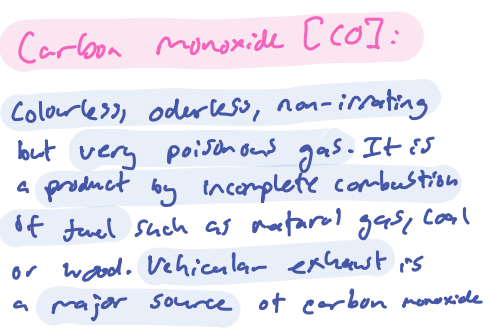 Carbon monoxide [CO]:
Colourless, oderless, non-irrating
but very poisonous gas. It is
a product by incomplete combustion
of fuel such as natural gas, coal
or wood. Vehicular exhaust is
a major source of carbon monoxide